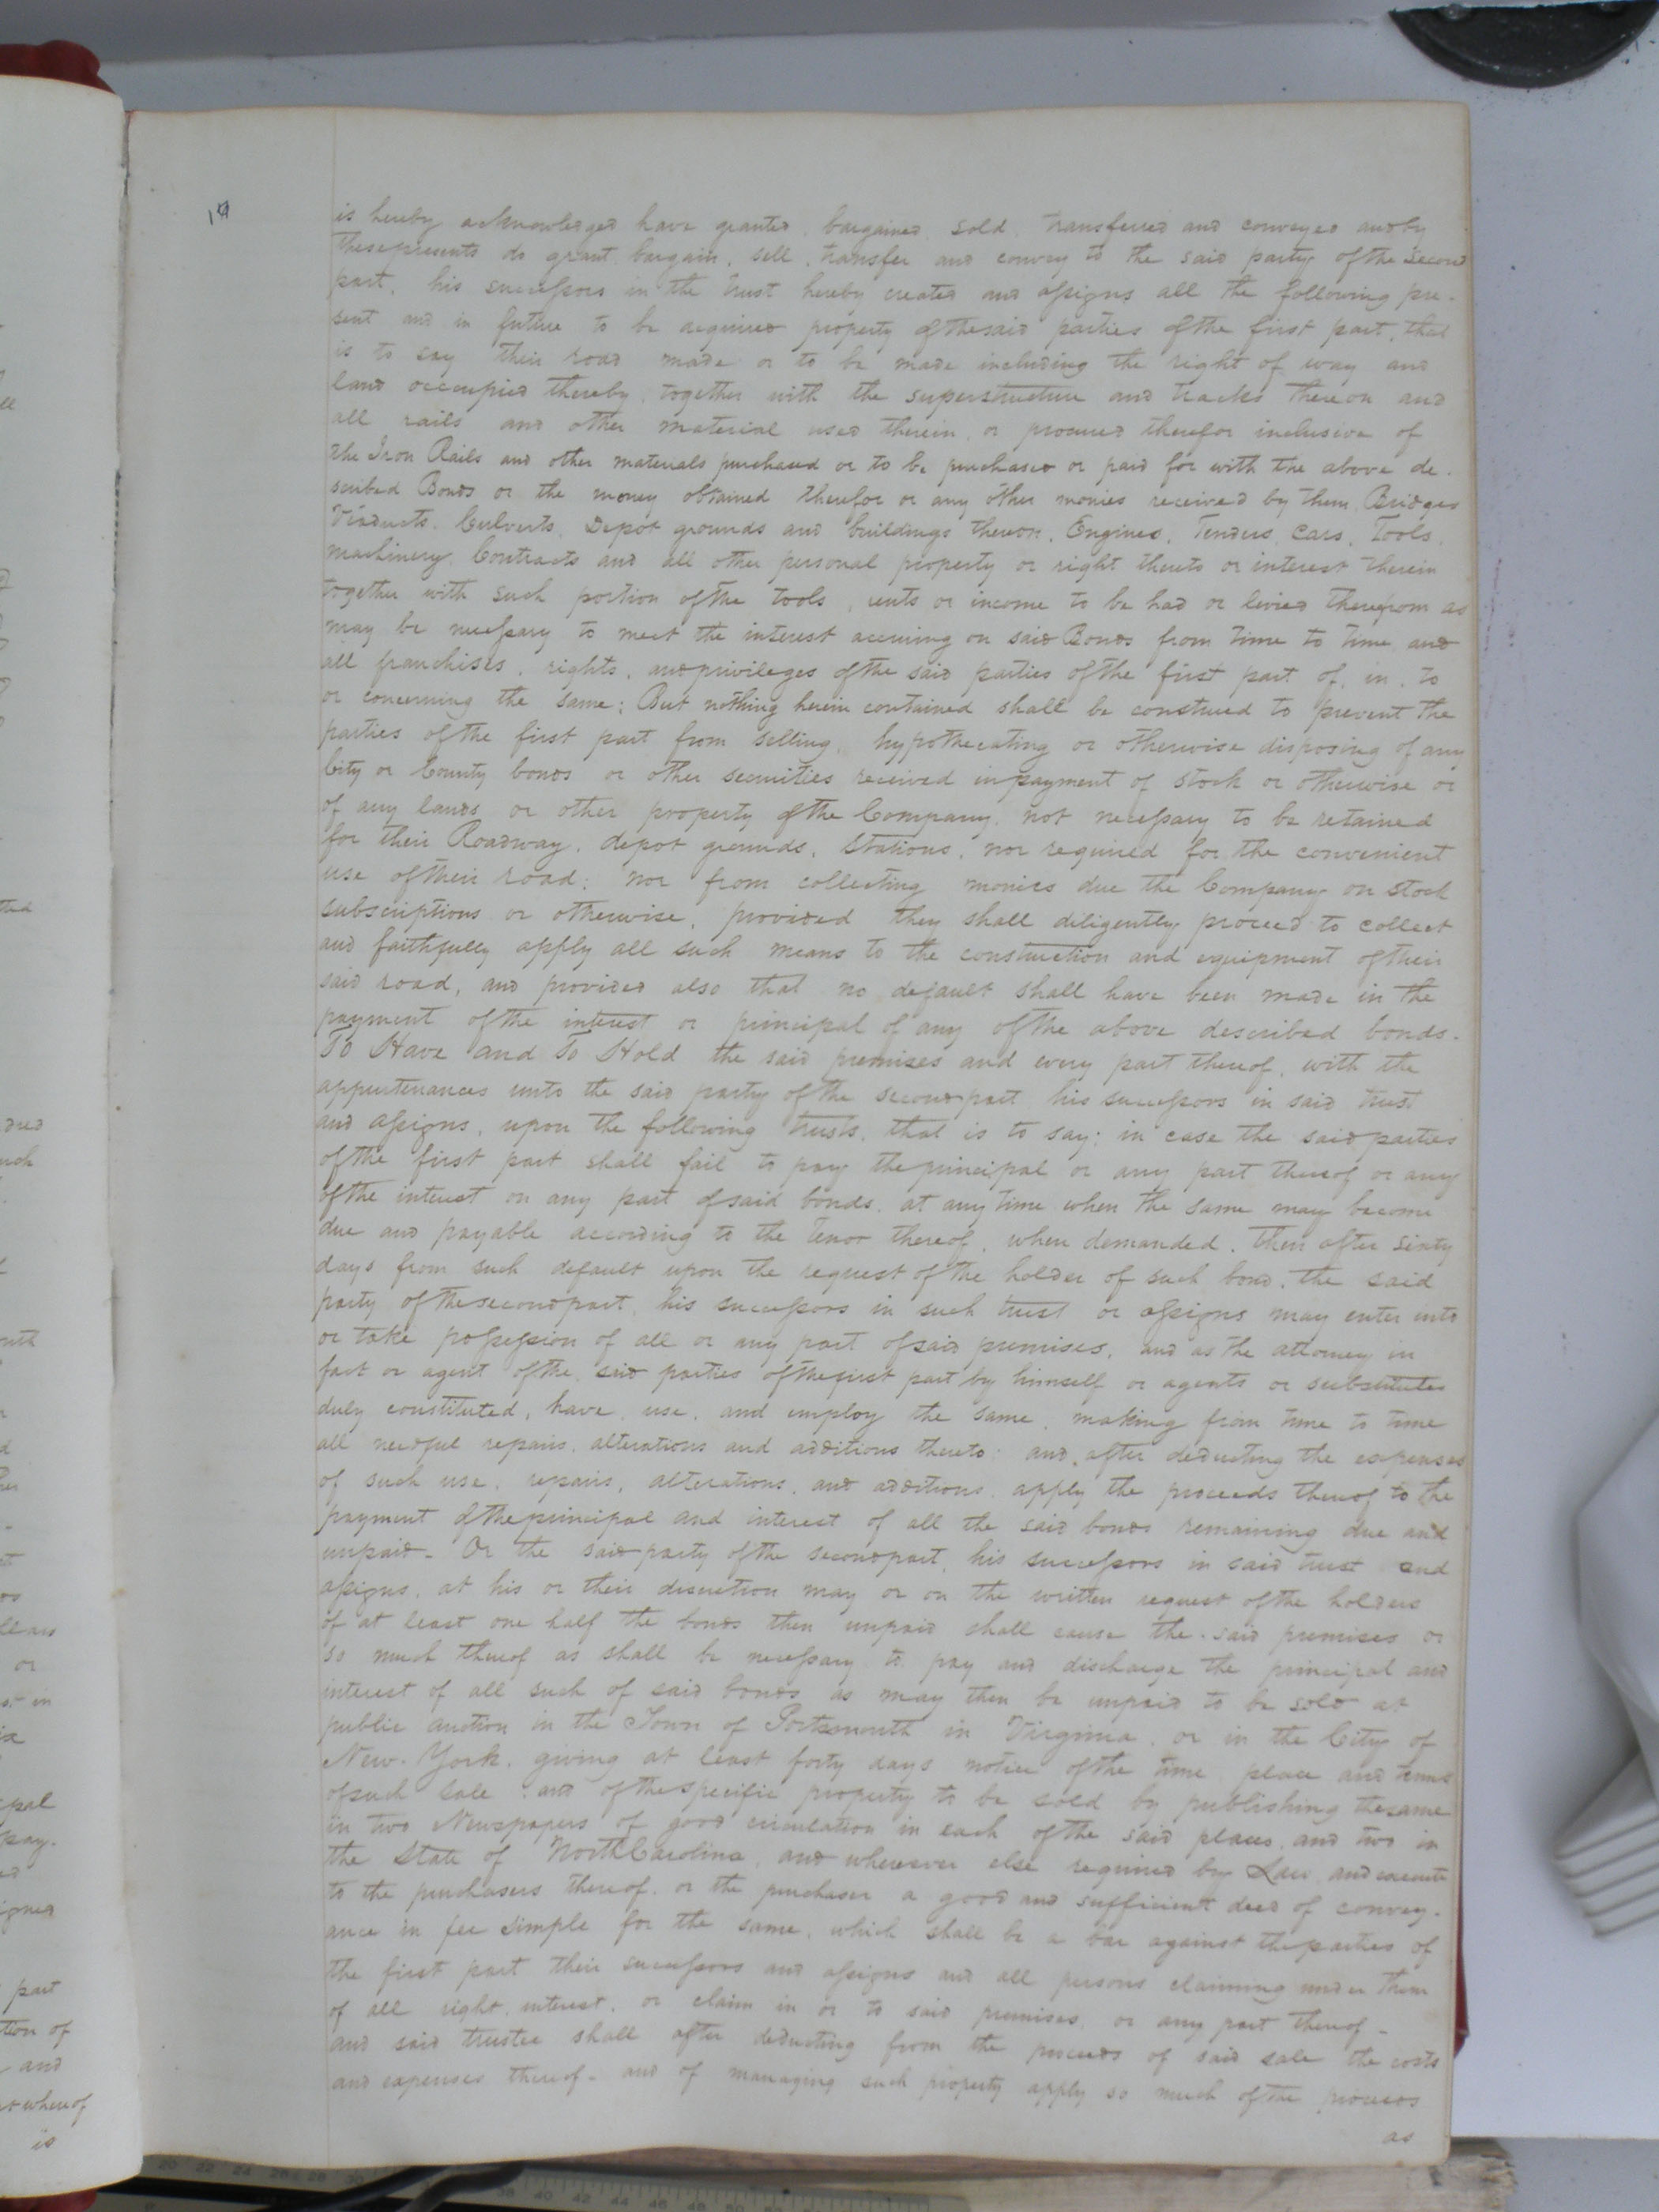 is hereby acknowledged have granted, bargained, sold, transferred and conveyed and by
these presents do grant, bargain, sell, transfer and convey to the said party of the Second
part, his successors in the trust hereby created and assigns all the following pre-
sent and in future to be acquired property of the said parties of the first part, that
is to say their road made or to be made including the right of way and
land occupied thereby, together with the superstructure and tracks thereon and
all rails and other material used therein, or procured therefor inclusive of
the Iron Rails and other materials purchased or to be purchased or paid for with the above de-
scribed Bonds or the money obtained therefor or any other monies received by them, Bridges
Viaducts, Culverts, Depot grounds and buildings thereon, Engines, Tenders, Cars, Tools,
machinery, Contracts and all other personal property or right thereto or interest therein
together with such portion of the tools, rents or income to be had or levied therefrom as
may be necessary to meet the interest accruing on said Bonds from time to time and
all franchises, rights, and privileges of the said parties of the first part of, in, to
or concerning the same; But nothing herein contained shall be construed to prevent the
parties of the first part from selling, hypothecating or otherwise disposing of any
City or County bonds or other securities received in payment of stock or otherwise or
of any lands or other property of the Company, not necessary to be retained
for their Roadway, depot grounds, Stations, nor required for the convenient
use of their road; nor from collecting monies due the Company on stock
subscriptions or otherwise, provided they shall diligently proceed to collect
and faithfully apply all such means to the construction and equipment of their
said road, and provided also that no default shall have been made in the
payment of the interest or principal of any of the above described bonds-
To Have and To Hold the said premises and every part thereof, with the
appurtenances unto the said party of the second part his successors in said trust
and assigns, upon the following trusts, that is to say; in case the said parties
of the first part shall fail to pay the principal or any part thereof or any
of the interest on any part of said bonds, at any time when the same may become
due and payable according to the tenor thereof, when demanded, then after sixty
days from such default upon the request of the holder of such bond, the said
party of the second part, his successors in such trust or assigns may enter into
or take possession of all or any part of said premises, and as the attorney in
fact or agent of the said parties of the first part by himself or agents or substitutes
duly constituted, have, use, and employ the same, making from time to time
all needful repairs, alterations and additions thereto; and, after deducting the expenses
of such use, repairs, alterations, and additions, apply the proceeds thereof to the
payment of the principal and interest of all the said bonds remaining due and
unpaid- Or the said party of the second part, his successors in said trust and
assigns, at his or their discretion may or on the written request of the holders
of at least one half the bonds then unpaid shall cause the said premises or
so much thereof as shall be necessary to pay and discharge the principal and
interest of all such of said bonds as may then be unpaid to be sold at
public auction in the Town of Portsmouth in Virginia, or in the City of
New-York, giving at least forty days notice of the time, place and terms
of such sale, and of the specific property to be sold by publishing the same
in two Newspapers of good circulation in each of the said places, and two in
the State of North Carolina, and wherever else required by Law, and execute
to the purchasers thereof, or the purchaser a good and sufficient deed of convey-
ance in fee simple for the same, which shall be a bar against the parties of
the first part their successors and assigns and all persons claiming under them
of all right, interest, or claim in or to said premises, or any part thereof-
and said trustee shall after deducting from the proceeds of said sale the costs
and expenses thereof- and of managing such property apply so much of the proceeds
as